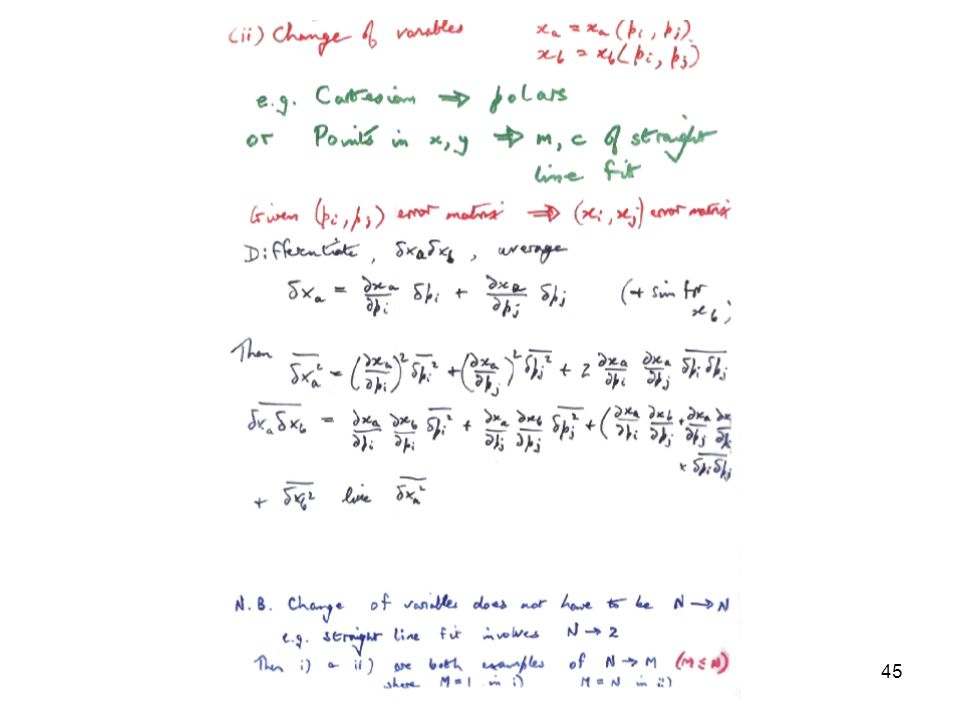 (ii) Change of variables xₐ = xₐ(pᵢ, pⱼ)
x_b = x_b(pᵢ, pⱼ)
e.g. Cartesian ⇒ polars
or Points in x, y ⇒ m, c of straight
line fit
Given (pᵢ, pⱼ) error matrix ⇒ (xᵢ, xⱼ) error matrix
Differentiate, δxₐδx_b, average
δxₐ = ∂xₐ/∂pᵢ δpᵢ + ∂xₐ/∂pⱼ δpⱼ (+ sim for
x_b)
Then \overline{δxₐ²} = (∂xₐ/∂pᵢ)² \overline{δpᵢ²} + (∂xₐ/∂pⱼ)² \overline{δpⱼ²} + 2 ∂xₐ/∂pᵢ ∂xₐ/∂pⱼ \overline{δpᵢ δpⱼ}
\overline{δxₐδx_b} = ∂xₐ/∂pᵢ ∂x_b/∂pᵢ \overline{δpᵢ²} + ∂xₐ/∂pⱼ ∂x_b/∂pⱼ \overline{δpⱼ²} + (∂xₐ/∂pᵢ ∂x_b/∂pⱼ + ∂xₐ/∂pⱼ ∂x/∂p
× \overline{δpᵢ δpⱼ}
+ \overline{δx_b²} like \overline{δxₐ²}
N.B. Change of variables does not have to be N → N
e.g. straight line fit involves N → 2
Then i) & ii) are both examples of N → M (M ≤ N)
M = 1 in i) M = N in ii)
45